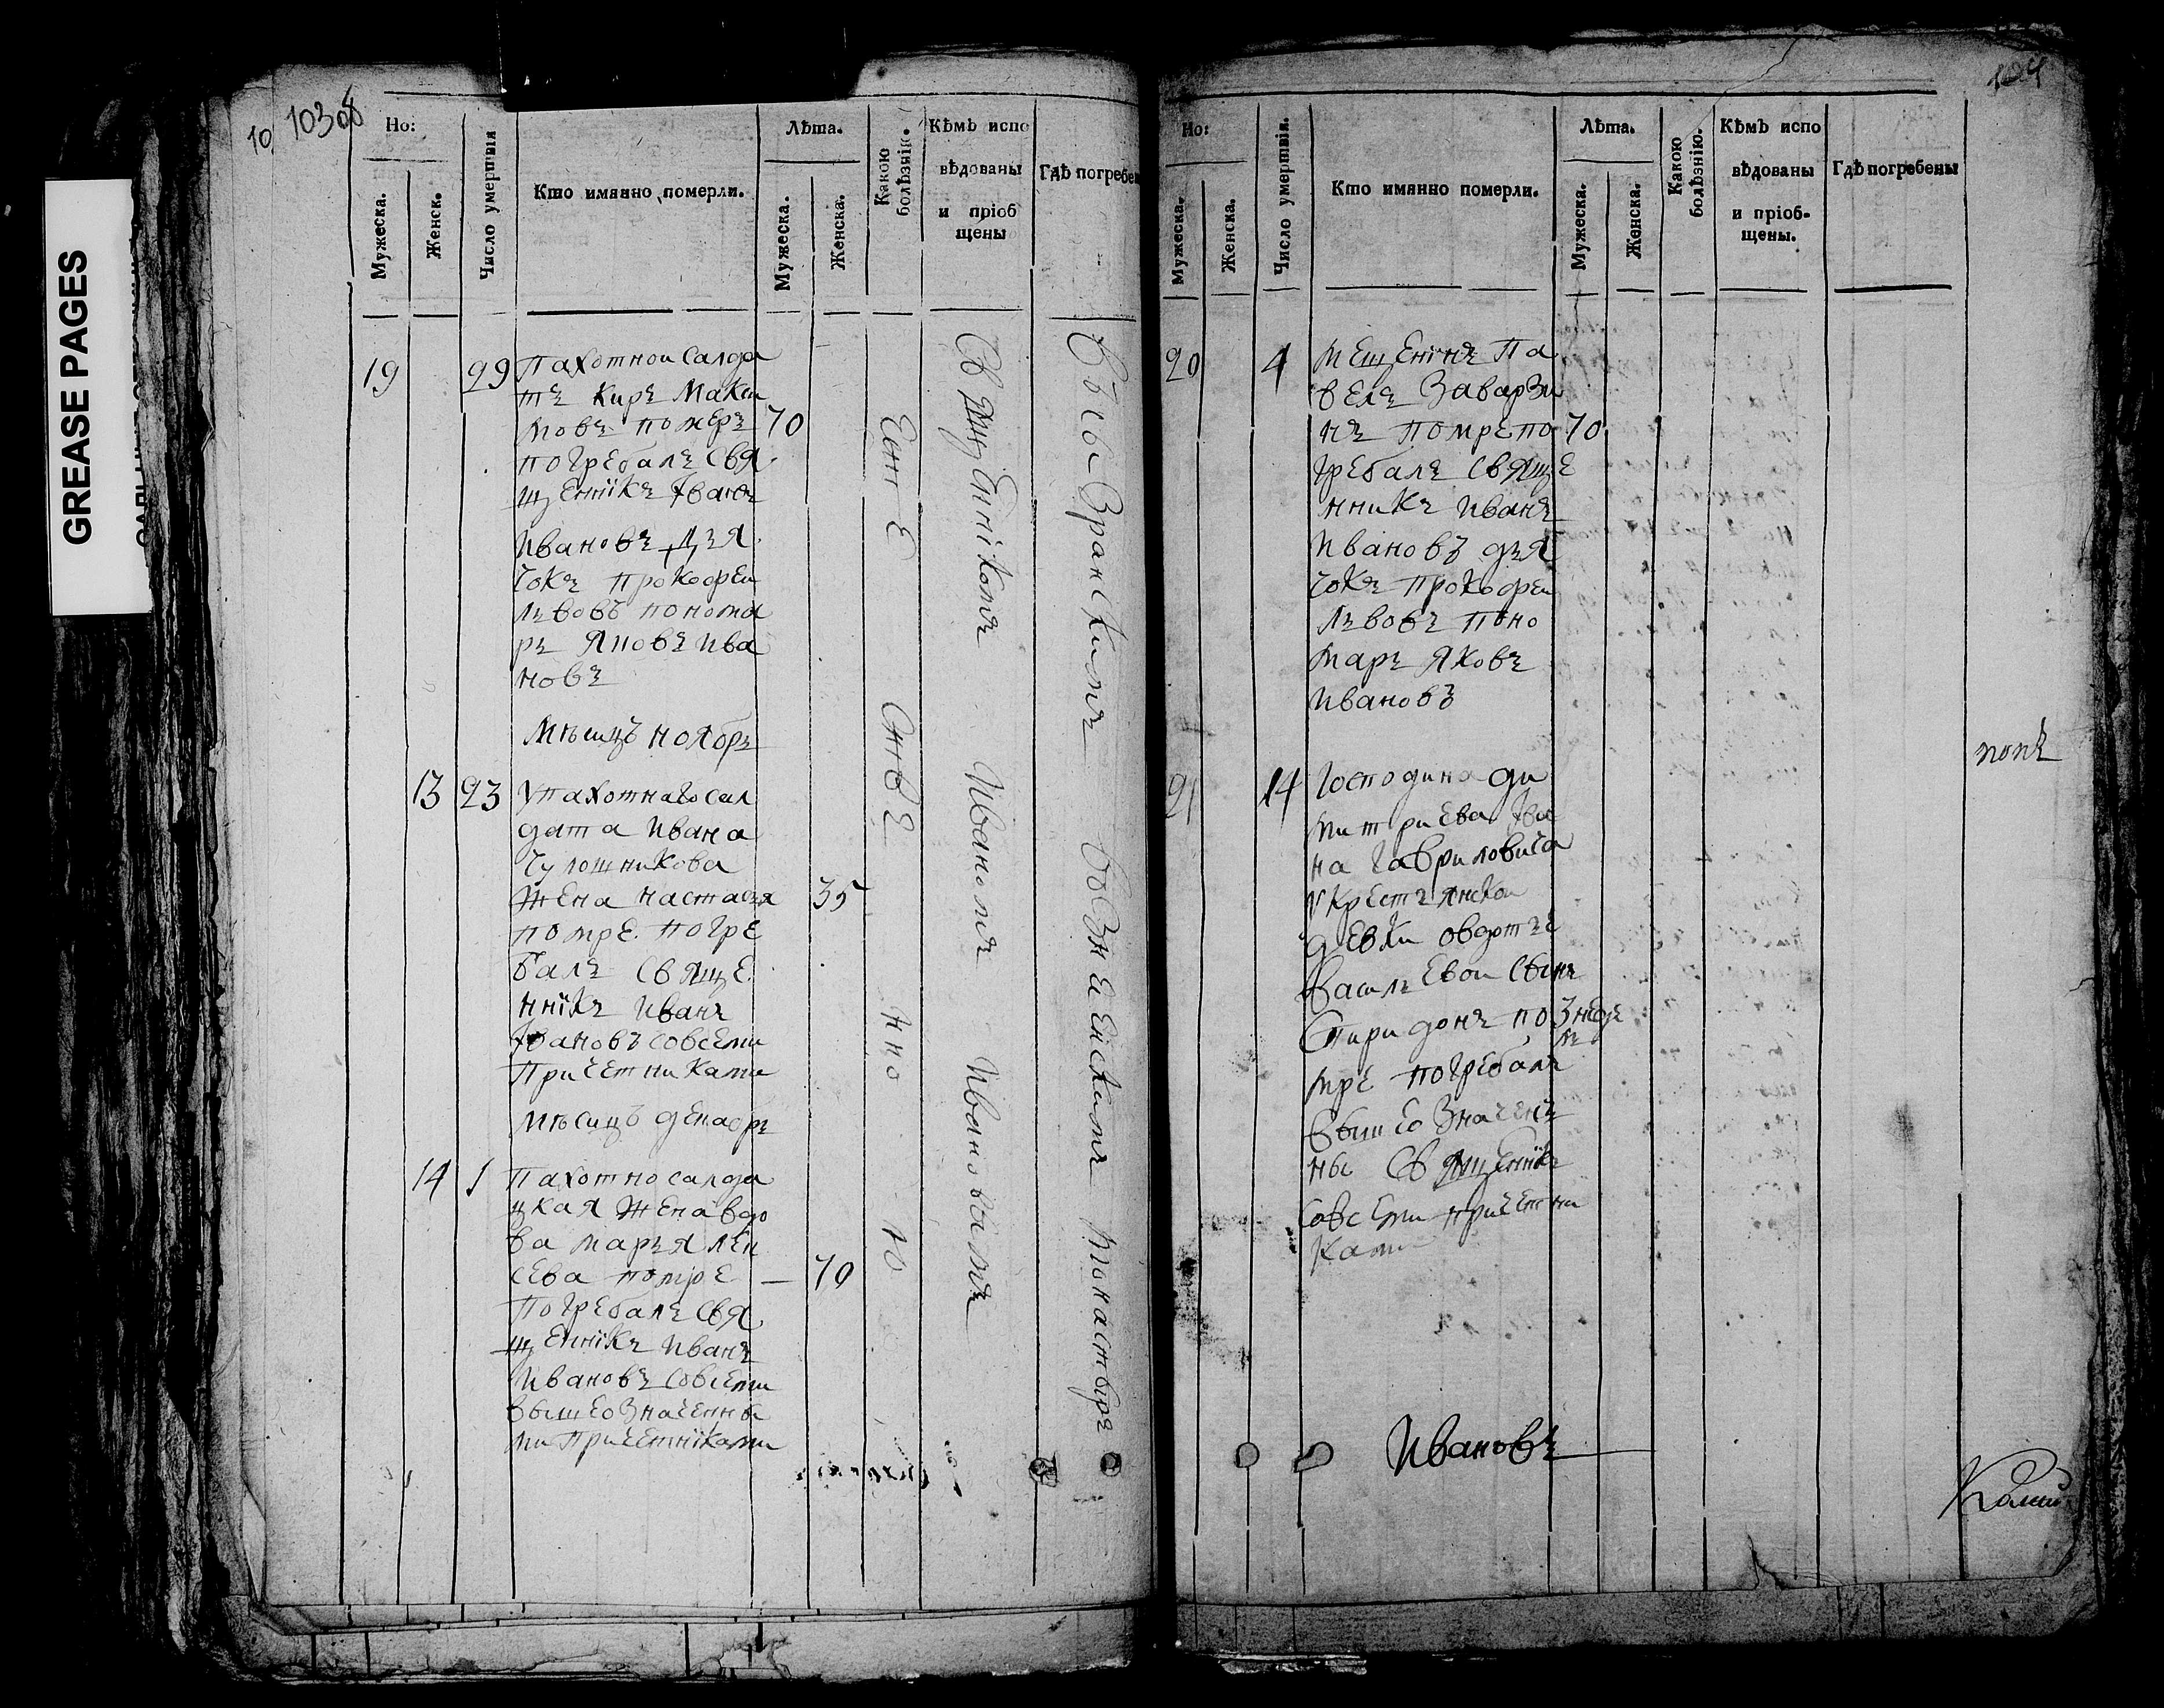 GREASE PAGES
10
Но:
Мужеска.
Женск.
Число умертвія
Кто имянно померли.
Лѣта.
Мужеска.
Женска.
Какою болѣзнію.
Кѣмъ испо
вѣдованы
и пріоб
щены
Гдѣ погребен
19
29
пахотнои салда
тъ киръ макси
мовъ померъ 70
погребалъ свя
щенникъ Iванъ
ивановъ дья
чокъ прокофеи
львовъ понома
ръ яковъ ива
новъ
мѣсяцъ ноябрь
13 23 упахотнаго сал
дата ивана
чулошникова
жена настасья 35
помре погре
балъ свяще
нникъ иванъ
Iвановъ совсеми
причетниками
мѣсяцъ декабрь
14 1 пахотно салда
цкая жена вдо
ва марья
сева помре 70
погребалъ свя
щенникъ иванъ
ивановъ совсеми
вышеозначенны
ми причетниками
Священникомъ Иваномъ Ивановымъ
вознесенскимъ монастыре
104
Но:
Мужеска.
Женска.
Число умертвія.
Кто имянно померли.
Лѣта.
Мужеска.
Женска.
Какою болѣзнію.
Кѣмъ испо
вѣдованы
и пріоб-
щены.
Гдѣ погребены
20 4 мещенинъ па
велъ Заварзи
нъ помре по 70
гребалъ свяще
нникъ иванъ
ивановъ дья
чокъ прокофеи
львовъ поно
маръ яковъ
ивановъ
21 14 Господина ди
митриева Iва
на гавриловича
укрестьянскои
девки овдотье
васильевои сынъ
Спиридонъ по 3 неде
ль
мре погребалъ
вышеозначенъ
ны священникъ
совсеми причетни
ками
попъ
Ивановъ